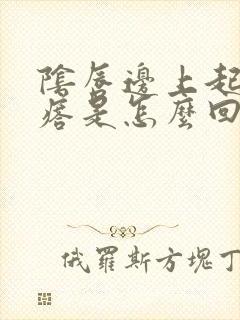 陰唇邊上起
痞是怎麼回
俄羅斯方塊丁